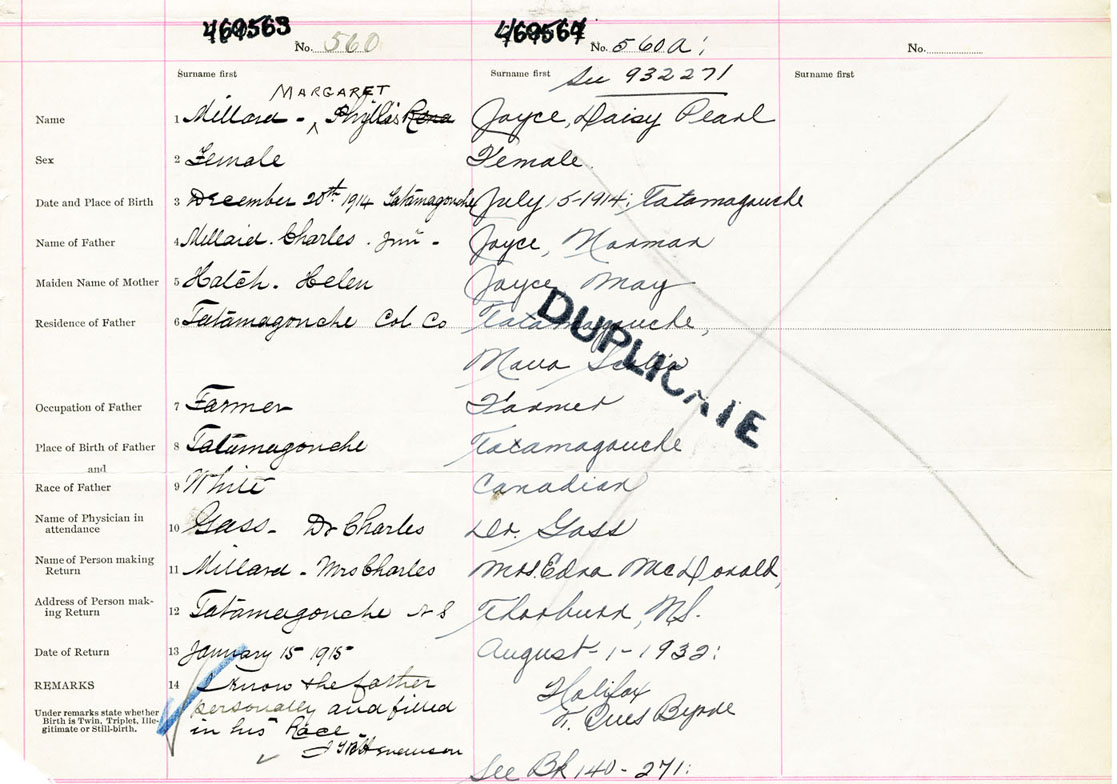 469563 469564
No. 560 No. 560A No.
Surname first Surname first Surname first
See 932271
MARGARET
Name 1 Millard - Phyllis Rena Joyce, Daisy Pearl
Sex 2 Female Female
Date and Place of Birth 3 December 20th 1914 Tatamagouche July 5-1914; Tatamagouche
Name of Father 4 Millard. Charles. Jnr - Joyce, Norman
Maiden Name of Mother 5 Hatch. Helen Joyce May
Residence of Father 6 Tatamagouche Col Co Tatamagouche,
Nova Scotia
DUPLICATE
Occupation of Father 7 Farmer Farmer
Place of Birth of Father 8 Tatamagouche Tatamagouche
and
Race of Father 9 White Canadian
Name of Physician in attendance 10 Gass - Dr Charles Dr. Gass
Name of Person making Return 11 Millard - Mrs Charles Mrs. Edna McDonald,
Address of Person making Return 12 Tatamagouche N S Thorburn, N.S.
Date of Return 13 January 15 1915 August-1-1932:
REMARKS 14 I know the father Halifax
Under remarks state whether Birth is Twin, Triplet, Illegitimate or Still-birth.
personally and filled
in his Race
See Bk 140-271: